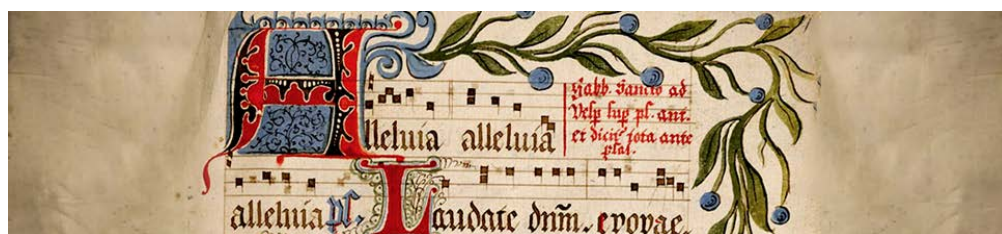 Alleluia alleluia
Sabb. Sancto ad
Vesp sup ps. ant.
et dicit tota ante
psal.
alleluia ps. Laudate dnm. evovae.